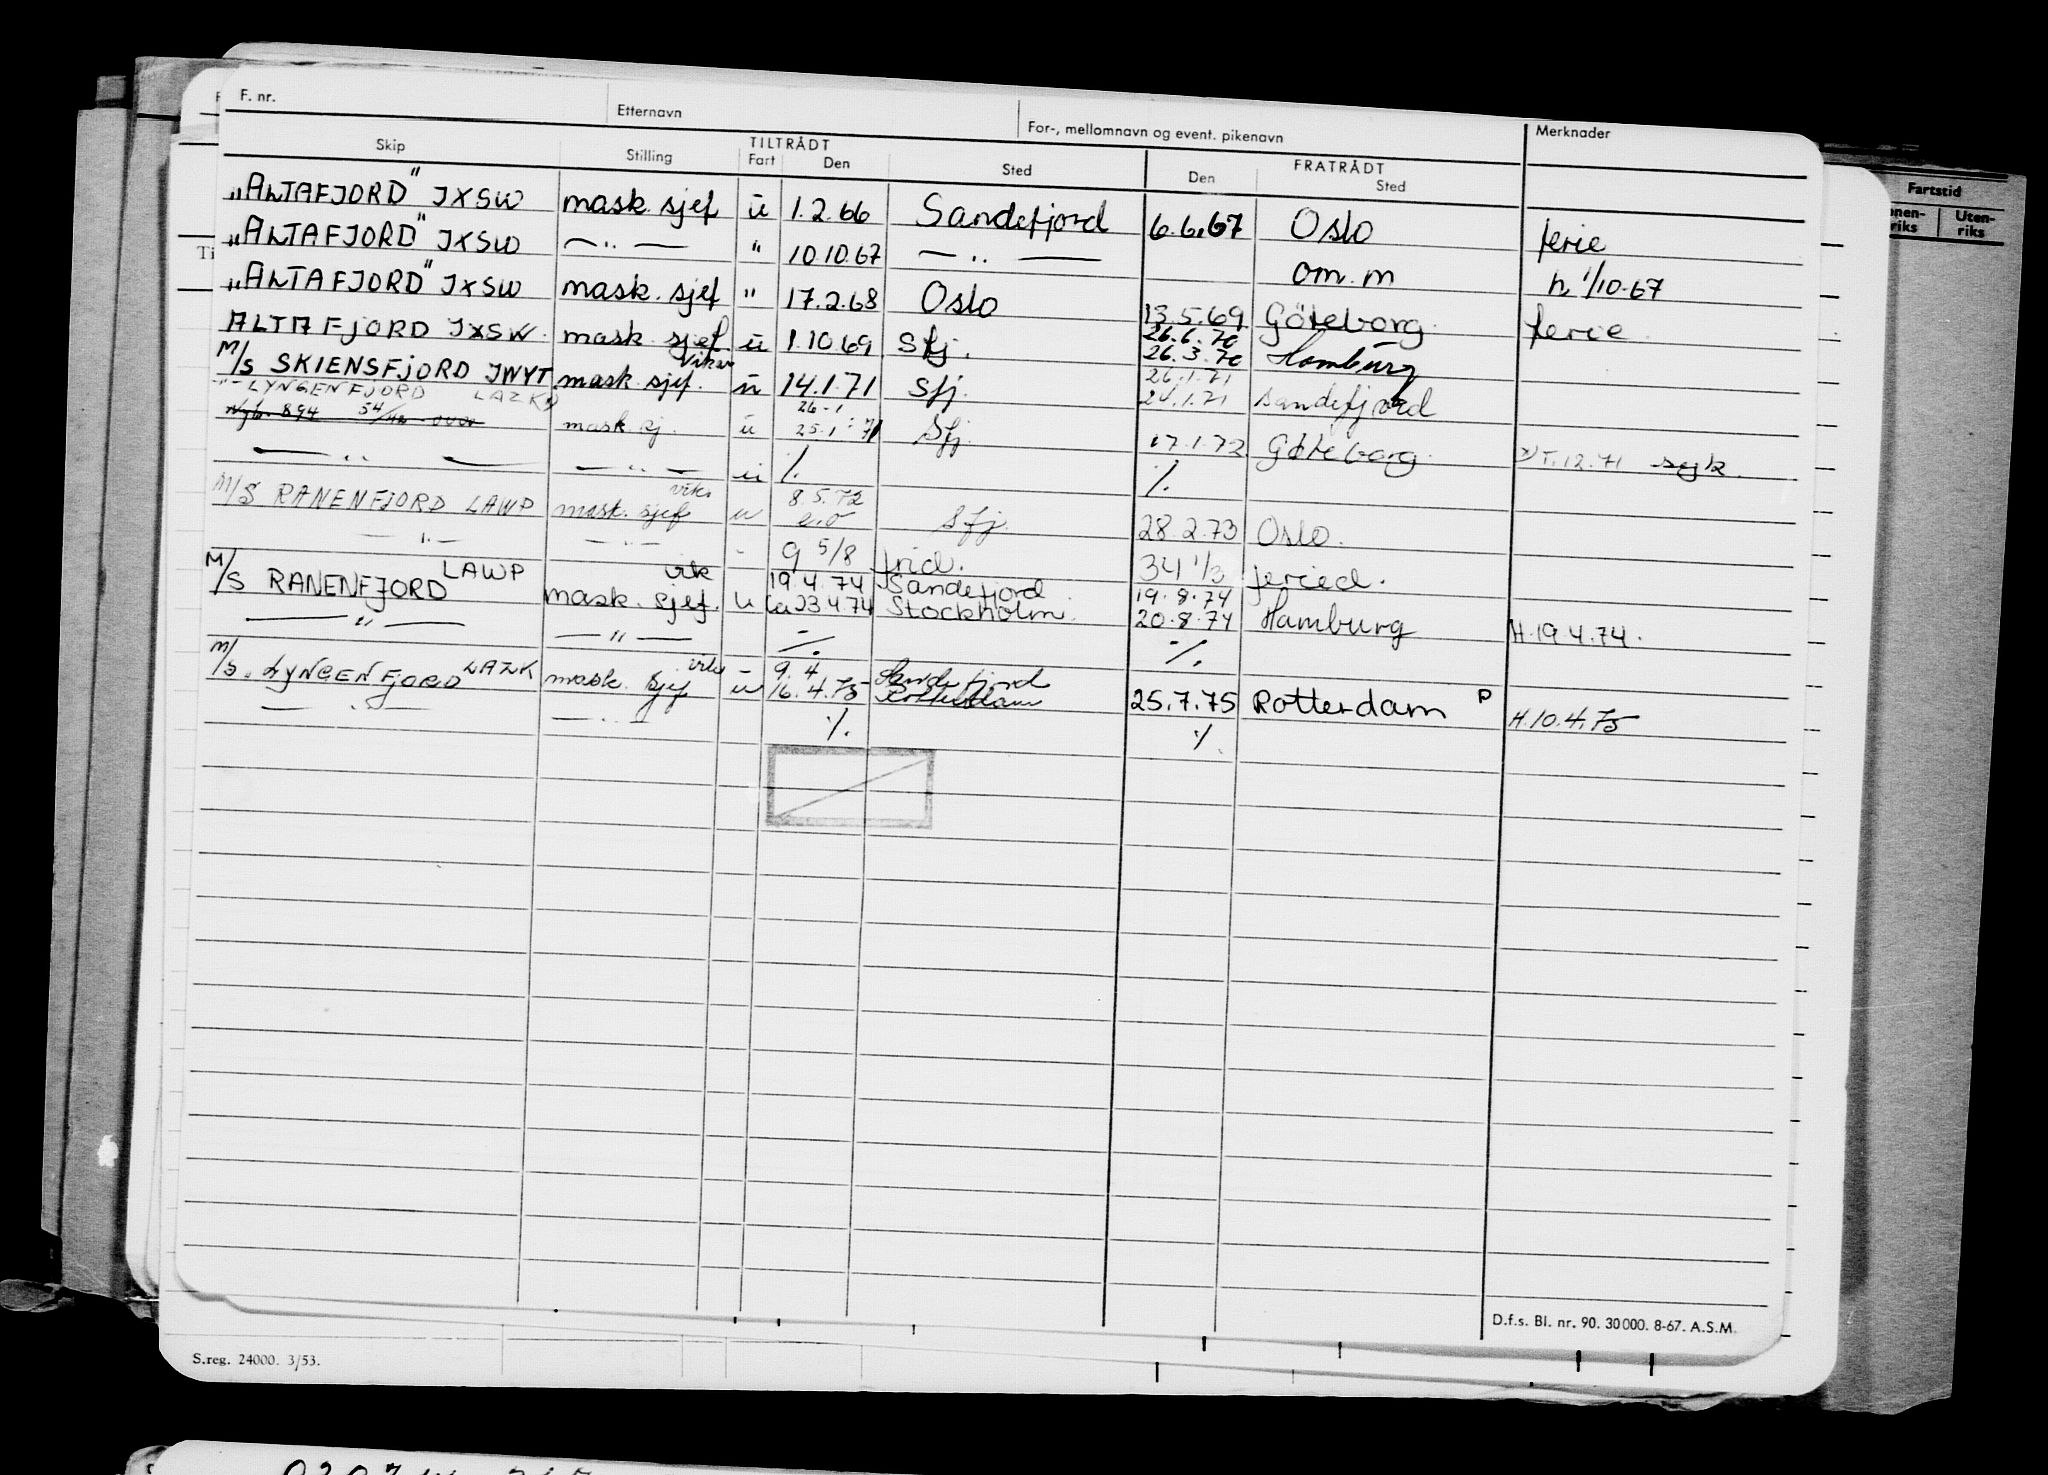 F. nr. Etternavn For-, mellomnavn og event. pikenavn Merknader
Skip Stilling TILTRÅDT Fart Den Sted FRATRÅDT Den Sted
"ALTAFJORD" JXSW mask. sjef u 1.2.66 Sandefjord 6.6.67 Oslo ferie
"ALTAFJORD" JXSW — " — " 10.10.67 — " — om.m h 1/10-67
"ALTAFJORD" JXSW mask. sjef " 17.2.68 Oslo 13.5.69 Göteborg ferie
ALTAFJORD JXSW. mask. sjef u 1.10.69 Sfj. 26.6.70 26.3.70 Hamburg
M/S SKIENSFJORD JWYT mask. sjef. vikar u 14.1.71 Sfj. 26.1.71 24.1.71 Sandefjord
- " - LYNGENFJORD LAZK
Nyb. 894 mask. sj. u 26-1 25.1.71 Sfj. 17.1.72 Göteborg 12.71 syk.
— " — — " — u ./. ./.
M/S RANENFJORD LAWP mask. sjef vik. u 8.5.72 Sfj. 28.2.73 Oslo.
— " — — " — - 9 5/8 frid. 34 1/3 feried.
M/S RANENFJORD LAWP mask. sjef. vik u 19.4.74 Sandefjord 23.4.74 Stockholm. 19.8.74 20.8.74 Hamburg H.19.4.74.
— " — — " — ./. ./.
M/S. LYNGENFJORD LAZK mask. sjef vik u 9.4 16.4.75 Sandefjord Rotterdam 25.7.75 Rotterdam P H.10.4.75
— " — — " — ./. ./.
Fartstid
Uten-
riks
D.f.s. Bl. nr. 90. 30000. 8-67. A.S.M.
S.reg. 24000. 3/53.